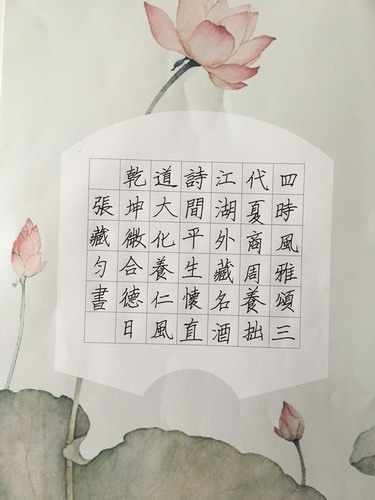 四時風雅頌三
代夏商周養拙
江湖外藏名酒
詩間平生懷直
道大化養仁風
乾坤微合德日
張藏勻書